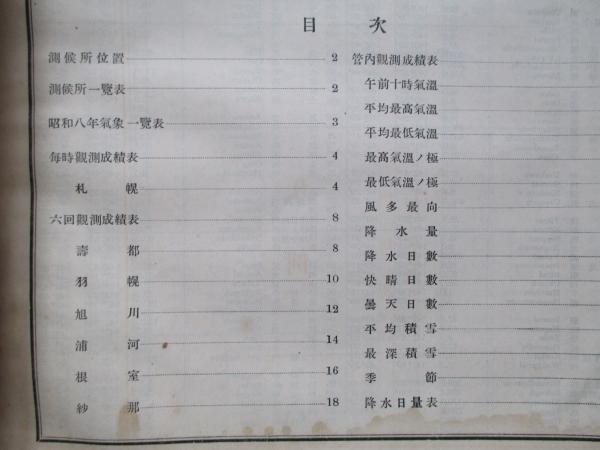 目次
測候所位置 2
測候所一覽表 2
昭和八年氣象一覽表 3
每時觀測成績表 4
札幌 4
六回觀測成績表 8
壽都 8
羽幌 10
旭川 12
浦河 14
根室 16
紗那 18
管內觀測成績表
午前十時氣溫
平均最高氣溫
平均最低氣溫
最高氣溫ノ極
最低氣溫ノ極
風多最向
降水量
降水日數
快晴日數
曇天日數
平均積雪
最深積雪
季節
降水日量表